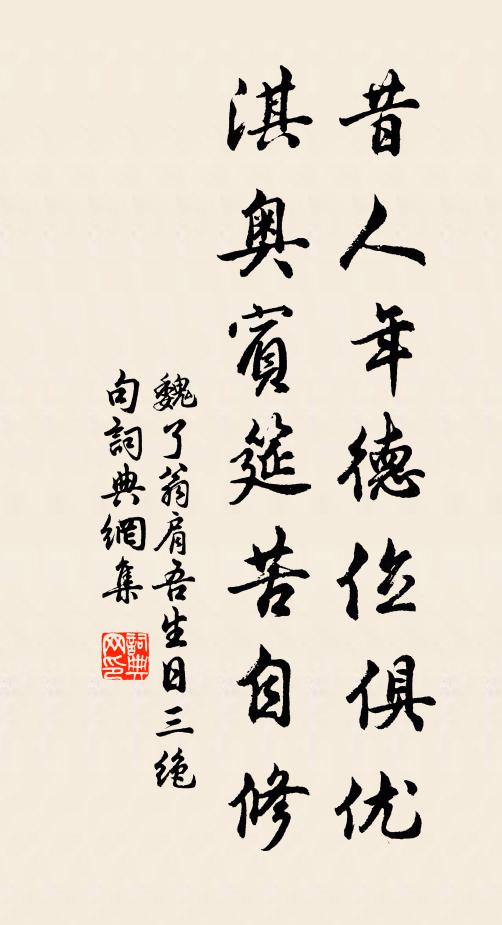 昔人年德位俱优
淇奥賓筵苦自修
魏了翁肩吾生日三絶
句詞典網集
詞典网印